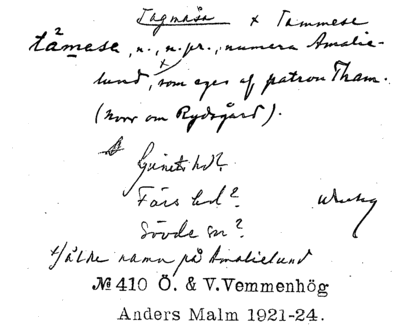 Tagmåsa x Tammese
tåmese, n., n.pr., numera Amalie-
lund, som eges af patron Tham.
(norr om Rydsgård).
hd?
Färs hd?
sn?
x/äldre namn på Amalielund
№ 410 Ö. & V. Vemmenhög
Anders Malm 1921-24.